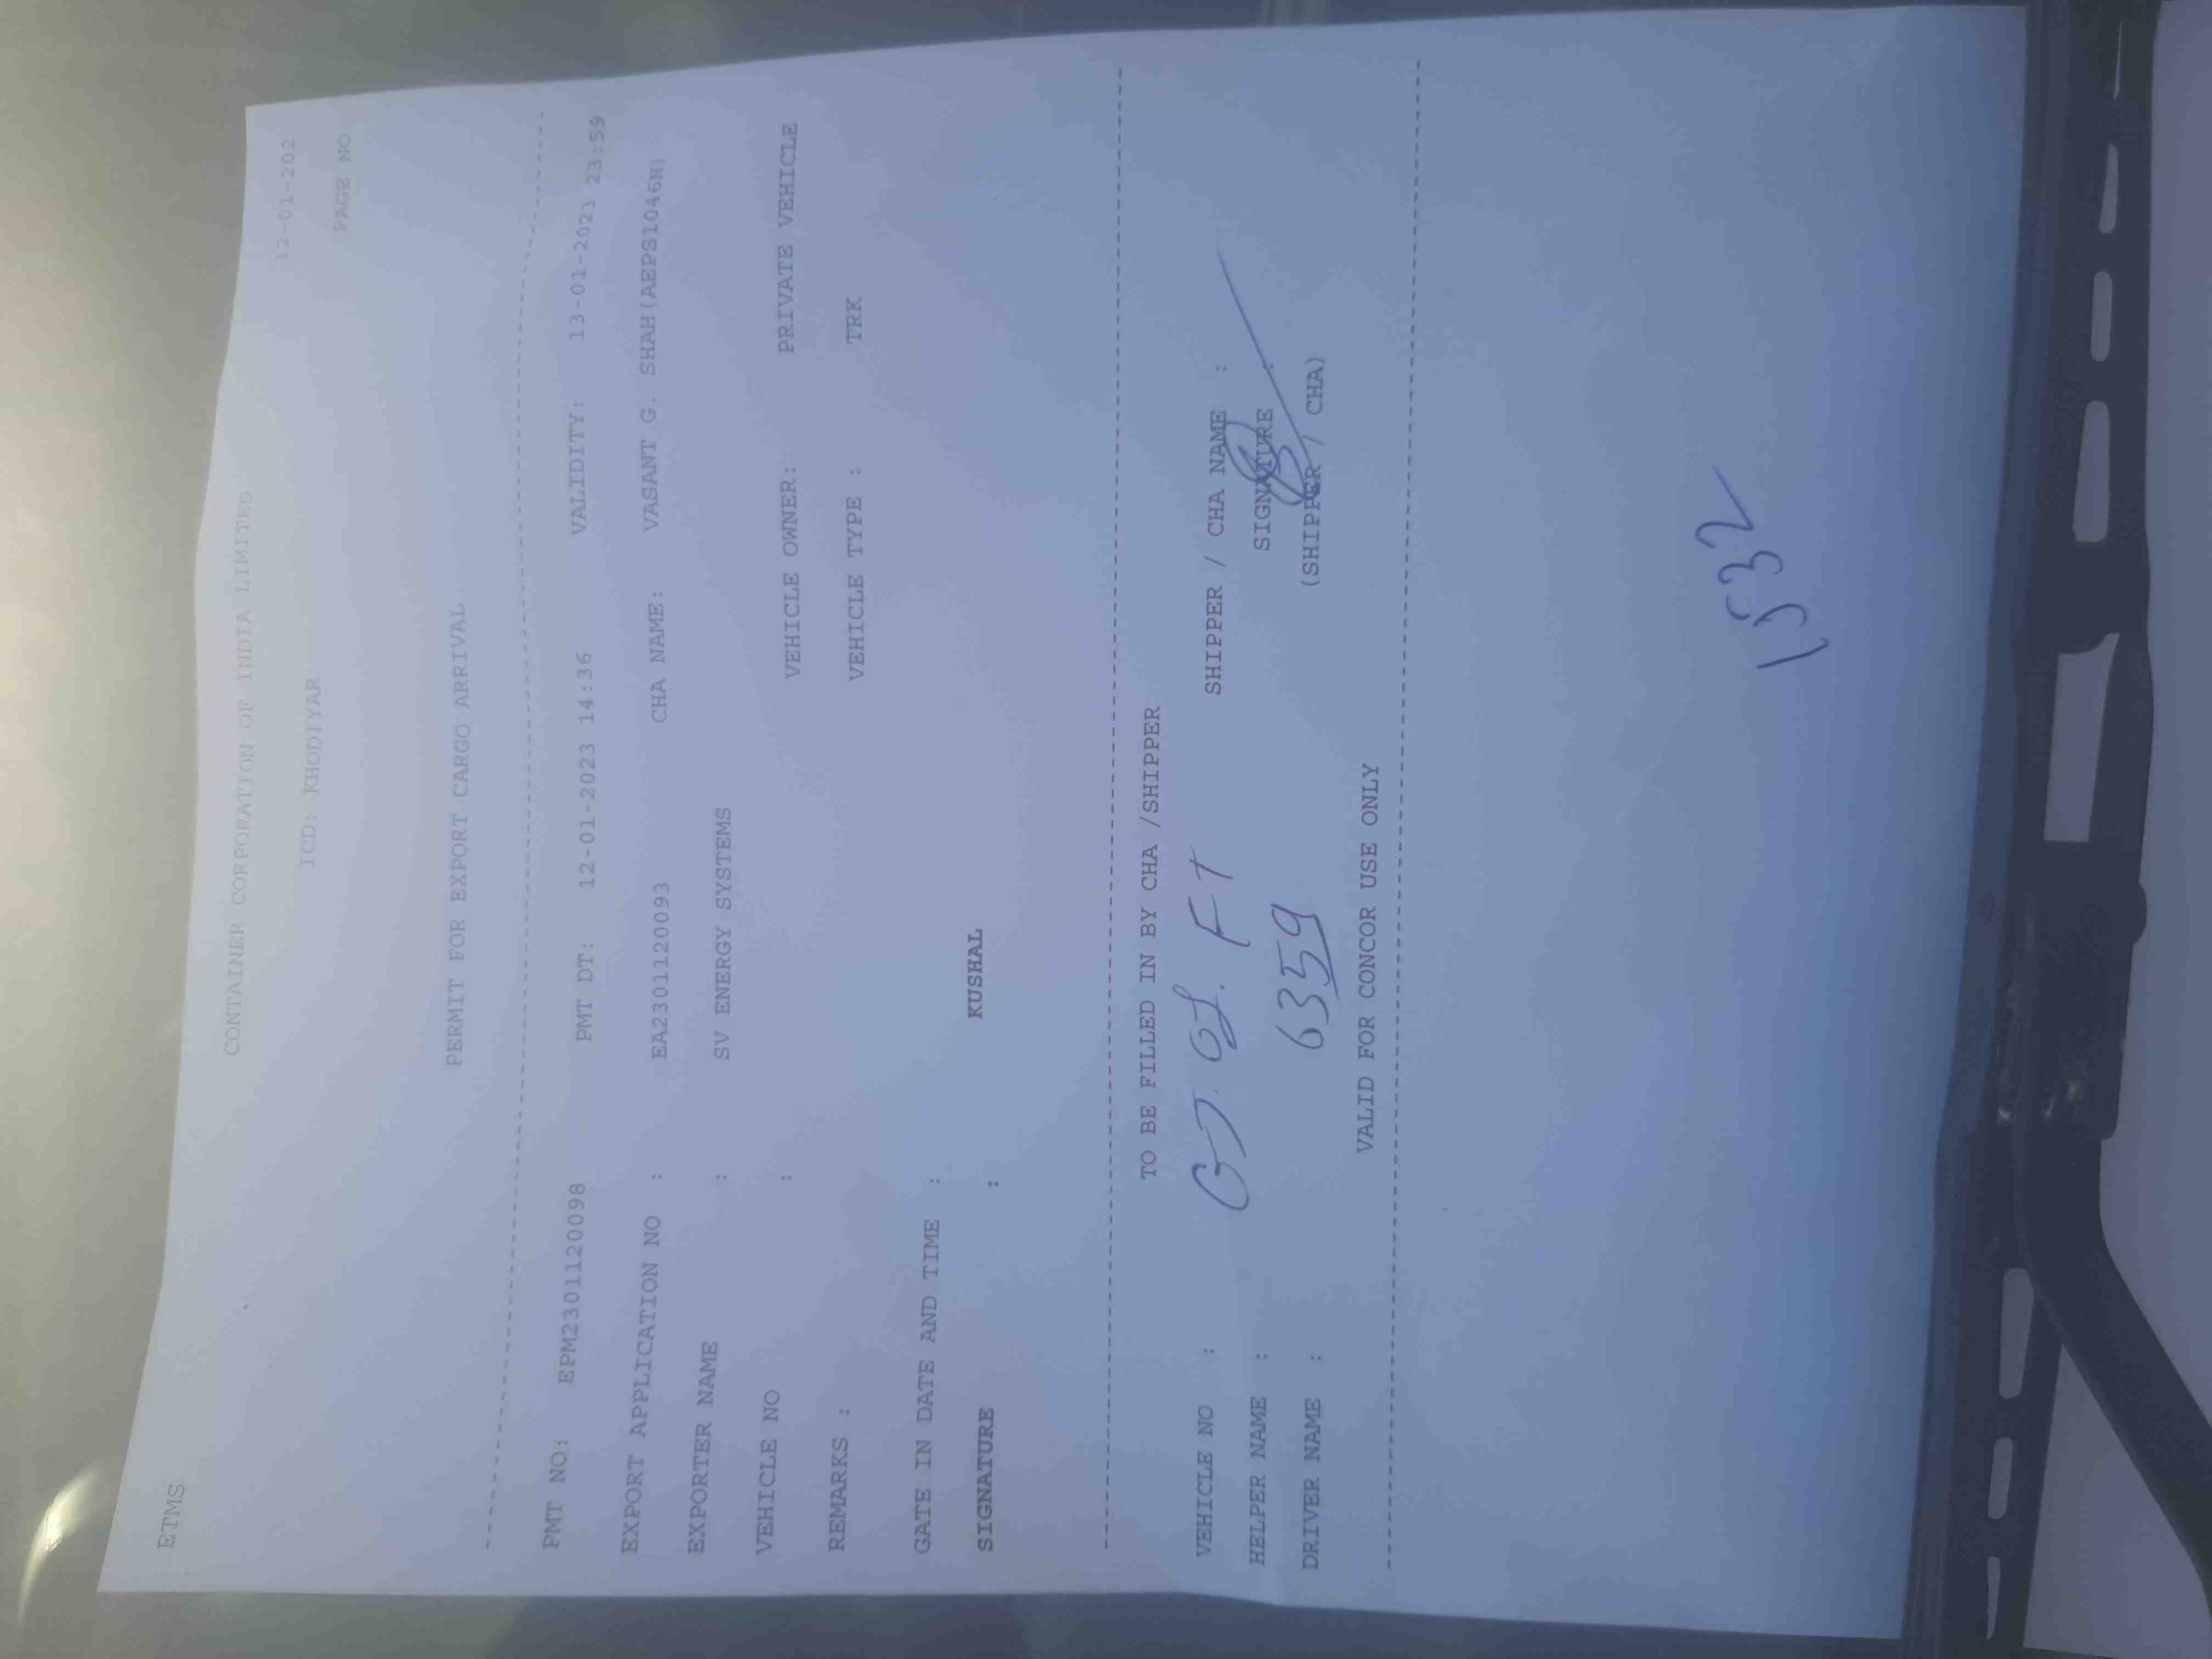 ETMS
CONTAINER CORPORATION OF INDIA LIMITED
12-01-202
ICD: KHODIYAR
PAGE NO
PERMIT FOR EXPORT CARGO ARRIVAL
PMT NO: EPM2301120098 PMT DT: 12-01-2023 14:36 VALIDITY: 13-01-2023 23:59
EXPORT APPLICATION NO : EA2301120093 CHA NAME: VASANT G. SHAH(AEPS1046N)
EXPORTER NAME : SV ENERGY SYSTEMS
VEHICLE NO : VEHICLE OWNER: PRIVATE VEHICLE
REMARKS : VEHICLE TYPE : TRK
GATE IN DATE AND TIME :
SIGNATURE : KUSHAL
TO BE FILLED IN BY CHA /SHIPPER
VEHICLE NO : GJ. 01. FT SHIPPER / CHA NAME :
HELPER NAME : SIGNATURE :
DRIVER NAME : 6359 (SHIPPER / CHA)
VALID FOR CONCOR USE ONLY
1532